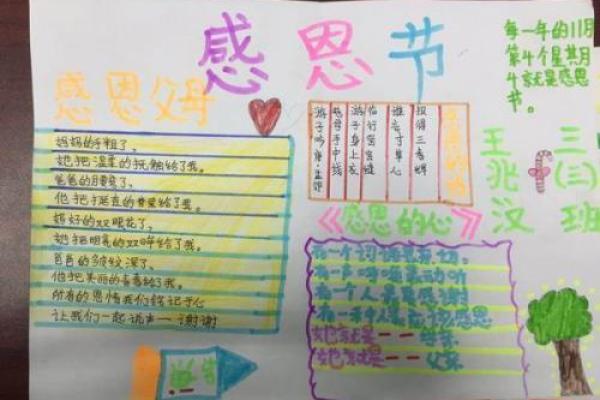 感恩节
每一年的11月
第4个星其月
就是感恩
节。
感恩父母
妈妈的手粗了、
她把温柔的抚触给了我。
爸爸的腰弯了、
他把挺直的脊梁给了我。
妈妈的双眼花了、
她把明亮的双眸给了我。
爸爸的皱纹深了、
他把美丽的青春给了我。
所有的恩情我们铭记于心
让我们一起说声——谢谢
游子吟唐·孟郊
慈母手中线
游子身上衣
临行密密缝
谁言寸草心
报得三春晖
王兆汉
三(三)班
《感恩的心》
有一个词语最亲切
有一声呼唤最动听
有一个人最要感谢
有一种人最应该感恩
她就是——母亲
她就是——父亲